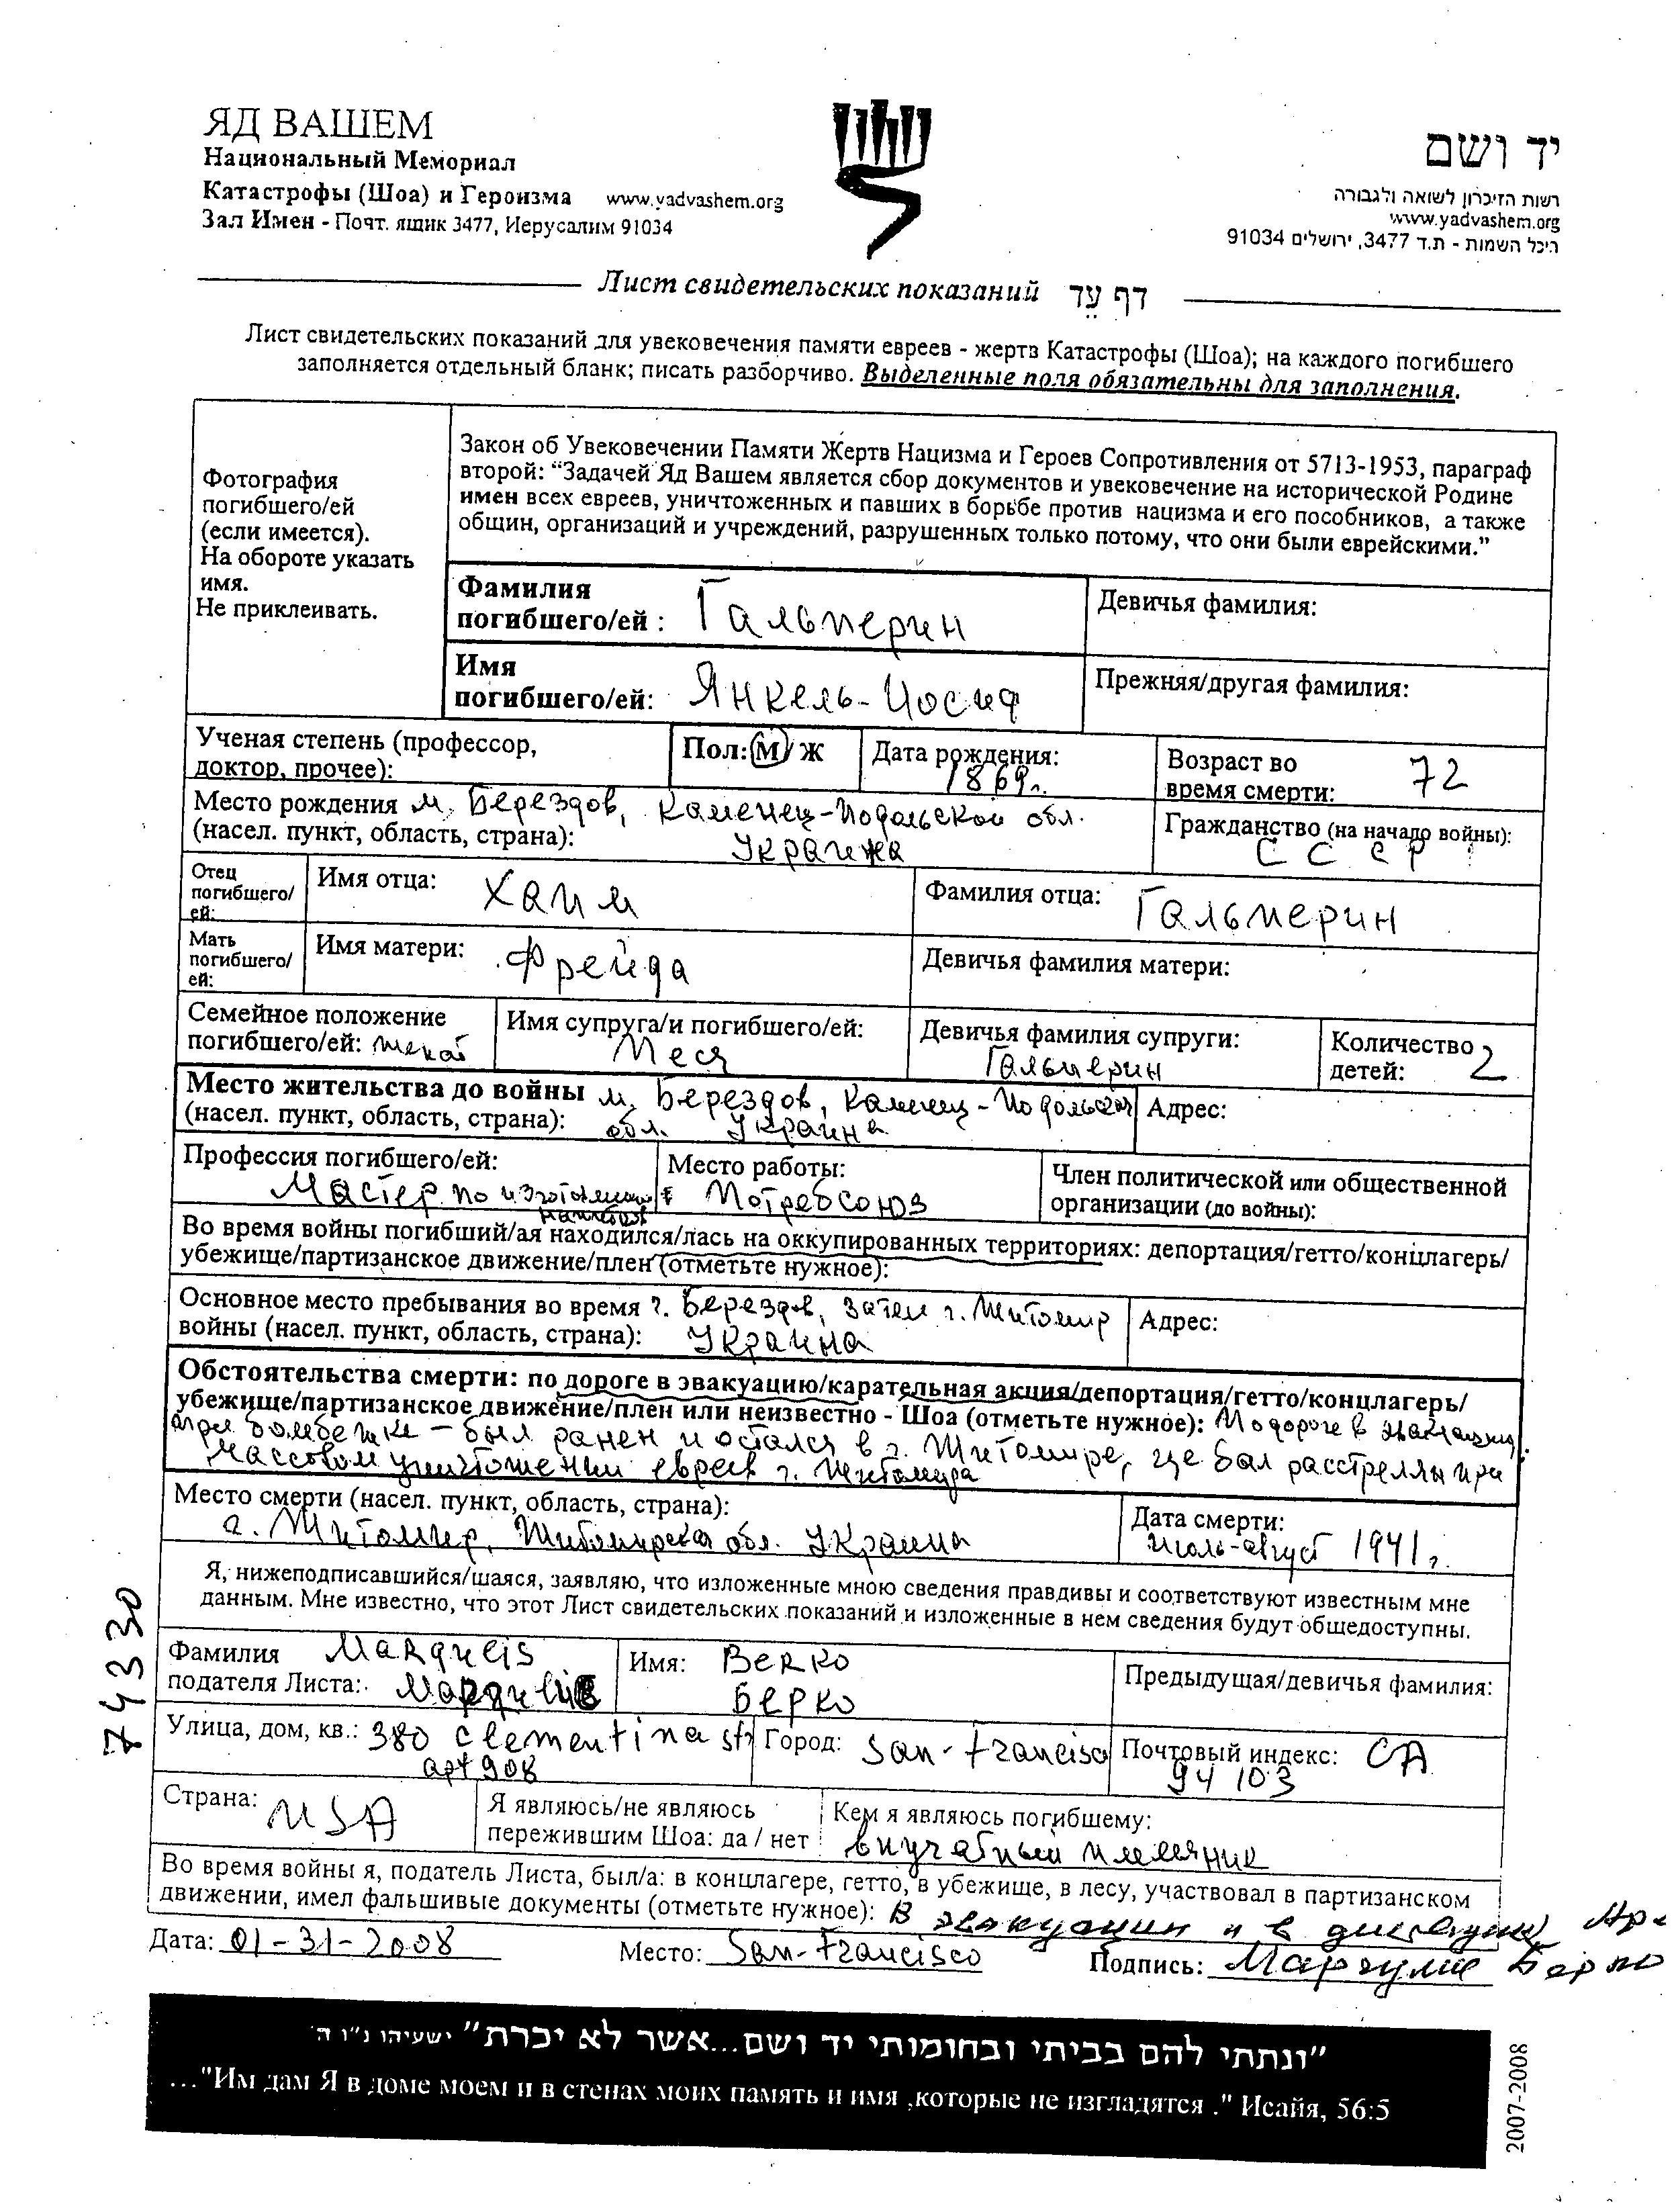 ЯД ВАШЕМ
Национальный Мемориал
Катастрофы (Шоа) и Героизма www.yadvashem.org
Зал Имен - Почт. ящик 3477, Иерусалим 91034
יד ושם
רשות הזיכרון לשואה ולגבורה
www.yadvashem.org
היכל השמות - ת.ד 3477, ירושלים 91034
Лист свидетельских показаний דף עֵד
Лист свидетельских показаний для увековечения памяти евреев - жертв Катастрофы (Шоа); на каждого погибшего
заполняется отдельный бланк; писать разборчиво. Выделенные поля обязательны для заполнения.
Фотография
погибшего/ей
(если имеется).
На обороте указать
имя.
Не приклеивать.
Закон об Увековечении Памяти Жертв Нацизма и Героев Сопротивления от 5713-1953, параграф
второй: “Задачей Яд Вашем является сбор документов и увековечение на исторической Родине
имен всех евреев, уничтоженных и павших в борьбе против нацизма и его пособников, а также
общин, организаций и учреждений, разрушенных только потому, что они были еврейскими.”
Фамилия
погибшего/ей : Гальперин
Девичья фамилия:
Имя
погибшего/ей: Янкель-Иосиф
Прежняя/другая фамилия:
Ученая степень (профессор,
доктор, прочее):
Пол: М / Ж
Дата рождения:
1869г.
Возраст во
время смерти: 72
Место рождения м. Берездов, Каменец-Подольской обл.
(насел. пункт, область, страна): Украина
Гражданство (на начало войны):
СССР
Отец
погибшего/
ей:
Имя отца: Хаим
Фамилия отца: Гальперин
Мать
погибшего/
ей:
Имя матери: Фрейда
Девичья фамилия матери:
Семейное положение
погибшего/ей: женат
Имя супруга/и погибшего/ей:
Меся
Девичья фамилия супруги:
Гальперин
Количество
детей: 2
Место жительства до войны м. Берездов, Каменец-Подольская
(насел. пункт, область, страна): обл. Украина
Адрес:
Профессия погибшего/ей:
Мастер по изготовлению
Место работы:
Потребсоюз
Член политической или общественной
организации (до войны):
Во время войны погибший/ая находился/лась на оккупированных территориях: депортация/гетто/концлагерь/
убежище/партизанское движение/плен (отметьте нужное):
Основное место пребывания во время г. Берездов, затем г. Житомир
войны (насел. пункт, область, страна): Украина
Адрес:
Обстоятельства смерти: по дороге в эвакуацию/карательная акция/депортация/гетто/концлагерь/
убежище/партизанское движение/плен или неизвестно - Шоа (отметьте нужное): По дороге в эвакуацию
при бомбежке - был ранен и остался в г. Житомире, где был расстрелян при
массовом уничтожении евреев г. Житомира
Место смерти (насел. пункт, область, страна):
г. Житомир, Житомирская обл. Украины
Дата смерти:
июль-август 1941г.
Я, нижеподписавшийся/шаяся, заявляю, что изложенные мною сведения правдивы и соответствуют известным мне
данным. Мне известно, что этот Лист свидетельских показаний и изложенные в нем сведения будут общедоступны.
74330
Фамилия Margulis
податея Листа: Маргулис
Имя: Berko
Берко
Предыдущая/девичья фамилия:
Улица, дом, кв.: 380 Clementina str
apt 908
Город: San-Francisco
Почтовый индекс: CA
94103
Страна: USA
Я являюсь/не являюсь
пережившим Шоа: да / нет
Кем я являюсь погибшему:
внучатный племянник
Во время войны я, податель Листа, был/а: в концлагере, гетто, в убежище, в лесу, участвовал в партизанском
движении, имел фальшивые документы (отметьте нужное): В эвакуации и в
Дата: 01-31-2008
Место: San-Francisco
Подпись: Маргулис Берко
"ונתתי להם בביתי ובחומותי יד ושם...אשר לא יכרת" ישעיהו נ"ו ה'
..."Им дам Я в доме моем и в стенах моих память и имя ,которые не изгладятся ." Исайя, 56:5
2007-2008